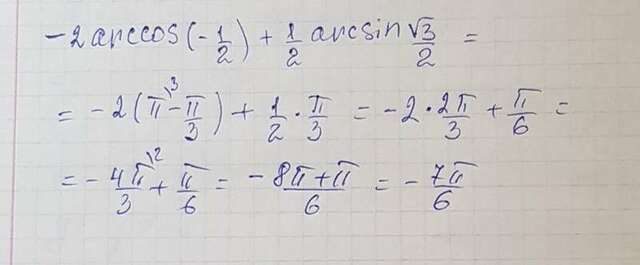 -2 arccos(-1/2) + 1/2 arcsin √3/2 =
= -2(π\3 - π/3) + 1/2 · π/3 = -2 · 2π/3 + π/6 =
= - 4π/3\2 + π/6 = -8π+π/6 = - 7π/6